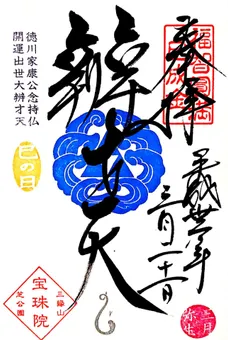 奉拝
平成卅一年
三月二十一日
三月
弥生
徳川家康公念持仏
開運出世大辨才天
巳の日
三縁山
宝珠院
芝公園